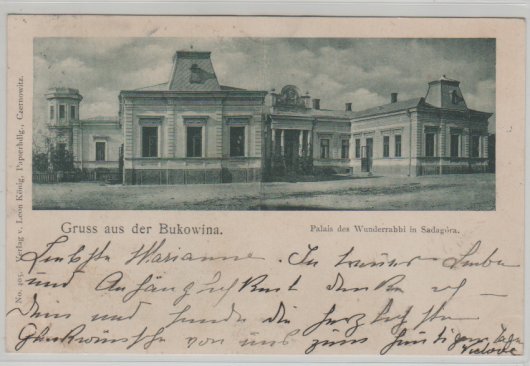 Gruss aus der Bukowina.
Palais des Wunderrabbi in Sadagóra.
No. 405. Verlag v. Leon König, Papierhdlg., Czernowitz.
Liebste Marianne. In treuer Liebe
und Anhänglichkeit denken
Dein und sende die herzlichsten
Glückwünsche von uns zum heutigen Tage